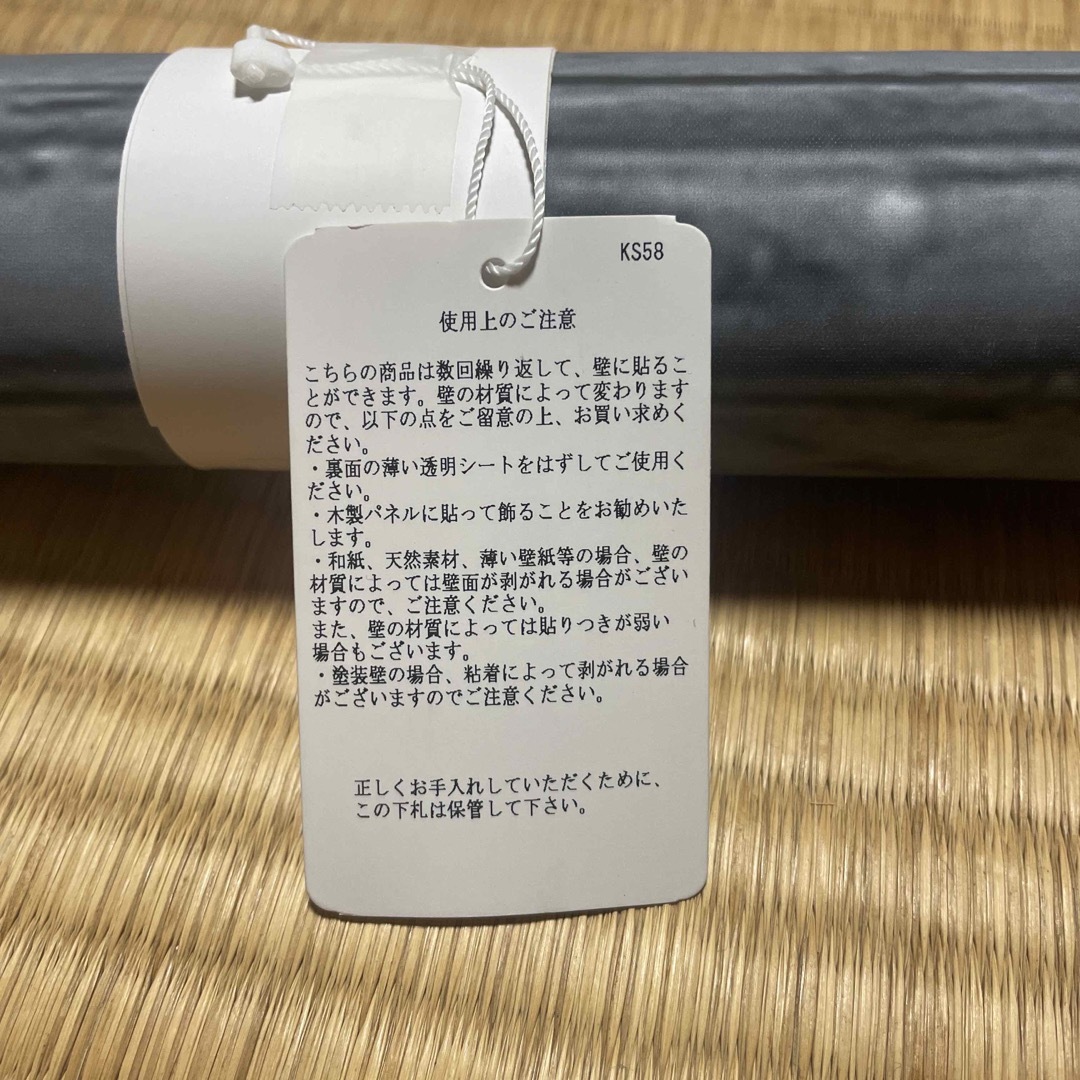 KS58
使用上のご注意
こちらの商品は数回繰り返して、壁に貼るこ
とができます。壁の材質によって変わります
ので、以下の点をご留意の上、お買い求めく
ださい。
・裏面の薄い透明シートをはずしてご使用く
ださい。
・木製パネルに貼って飾ることをお勧めいた
します。
・和紙、天然素材、薄い壁紙等の場合、壁の
材質によっては壁面が剥がれる場合がござい
ますので、ご注意ください。
また、壁の材質によっては貼りつきが弱い
場合もございます。
・塗装壁の場合、粘着によって剥がれる場合
がございますのでご注意ください。
正しくお手入れしていただくために、
この下札は保管して下さい。